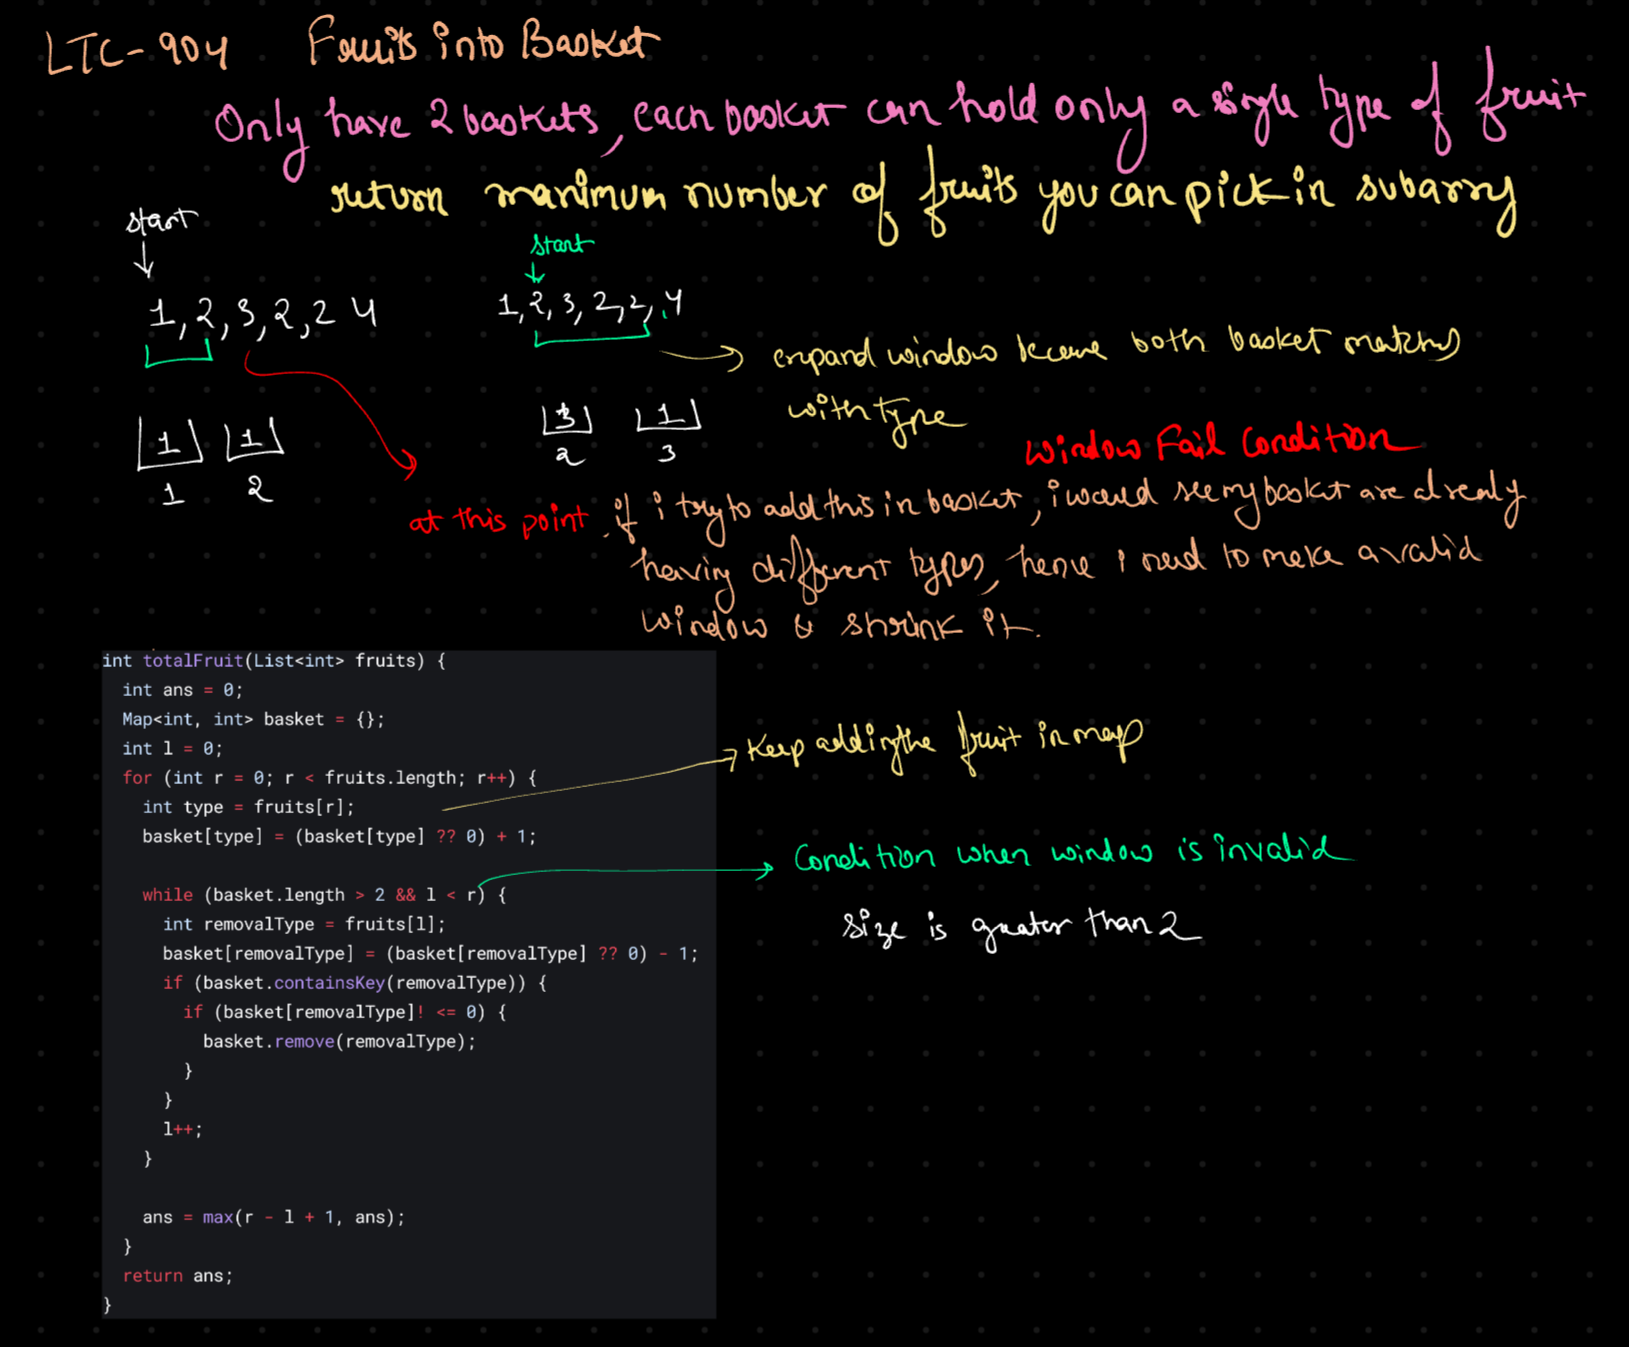 LTC-904 Fruits into Basket
Only have 2 baskets, each basket can hold only a single type of fruit
return maximum number of fruits you can pick in subarry
start
start
1, 2, 3, 2, 2 4
1, 2, 3, 2, 2, 4
expand window because both basket matches
with type
1 1
1 2
3 1
2 3
Window Fail Condition
at this point if i try to add this in basket, i would see my basket are already
having different types, hence i need to make a valid
window & shrink it.
int totalFruit(List<int> fruits) {
int ans = 0;
Map<int, int> basket = {};
int l = 0;
for (int r = 0; r < fruits.length; r++) {
int type = fruits[r];
basket[type] = (basket[type] ?? 0) + 1;
while (basket.length > 2 && l < r) {
int removalType = fruits[l];
basket[removalType] = (basket[removalType] ?? 0) - 1;
if (basket.containsKey(removalType)) {
if (basket[removalType]! <= 0) {
basket.remove(removalType);
}
}
l++;
}
ans = max(r - l + 1, ans);
}
return ans;
}
Keep adding the fruit in map
Condition when window is invalid
size is greater than 2